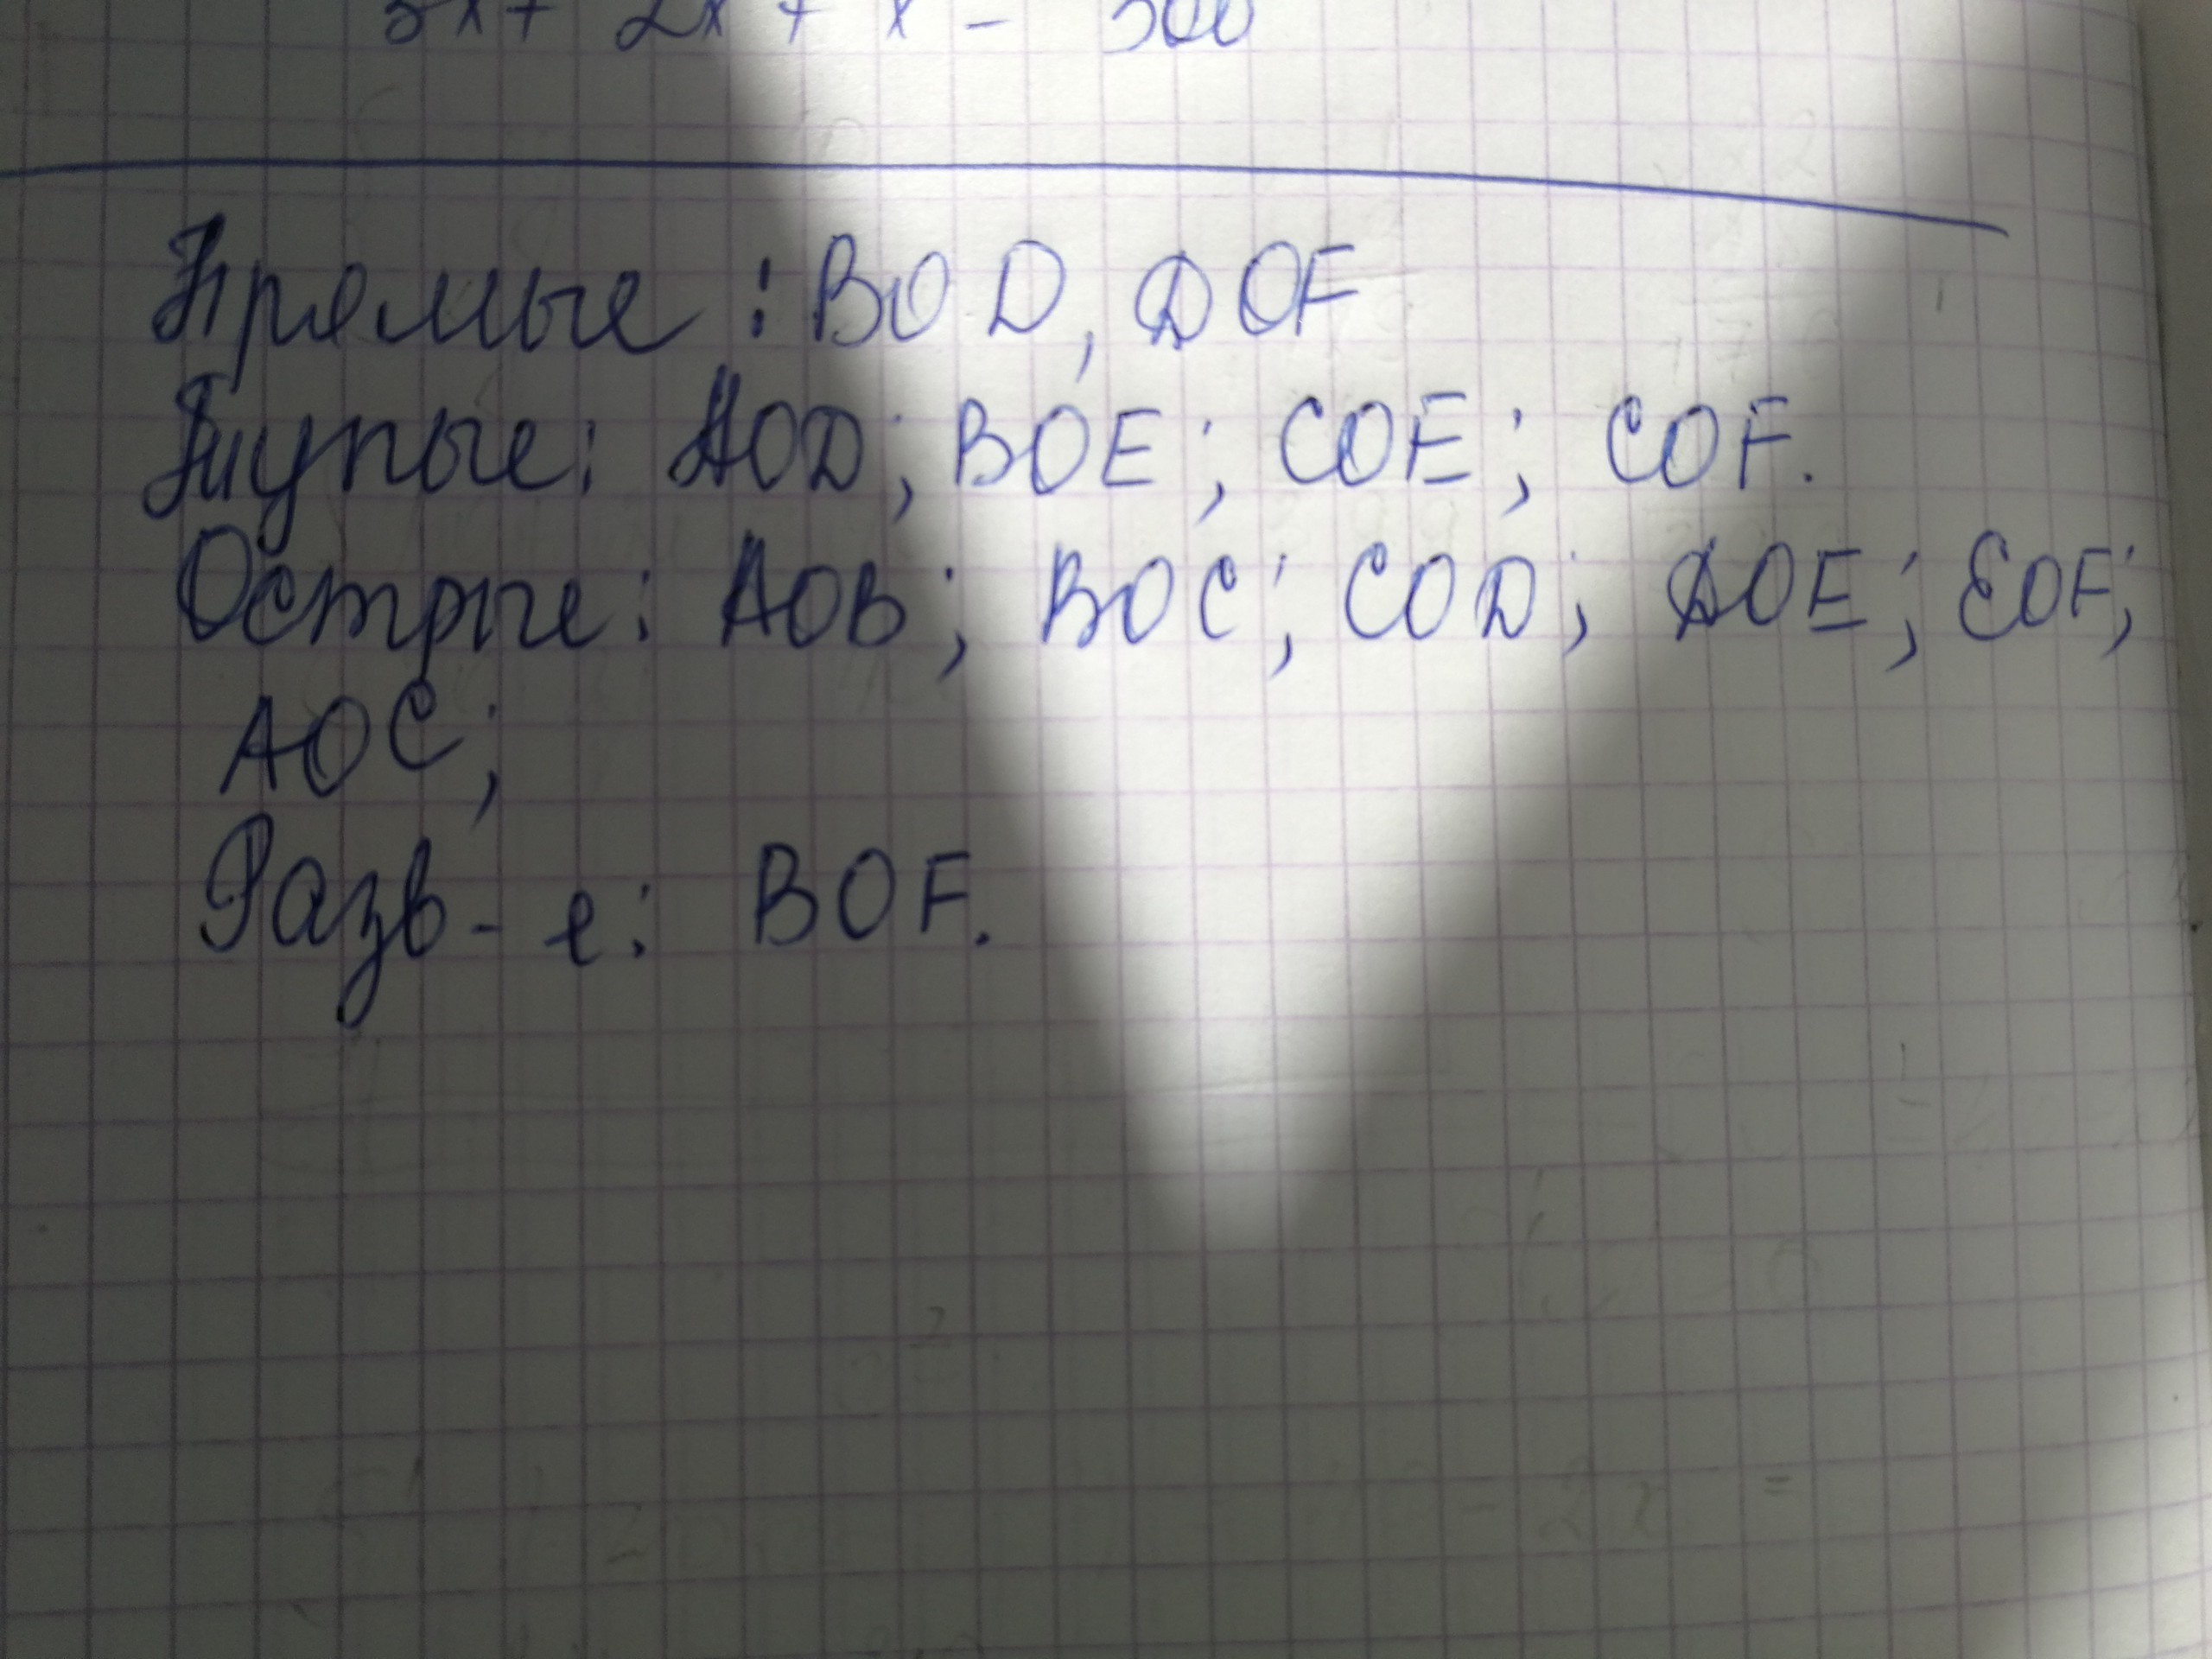 3x + 2x + x - 500
Прямые: BOD, DOF
Тупые: AOD; BOE; COE; COF.
Острые: AOB; BOC; COD; DOE; EOF;
AOC;
Разв-е: BOF.